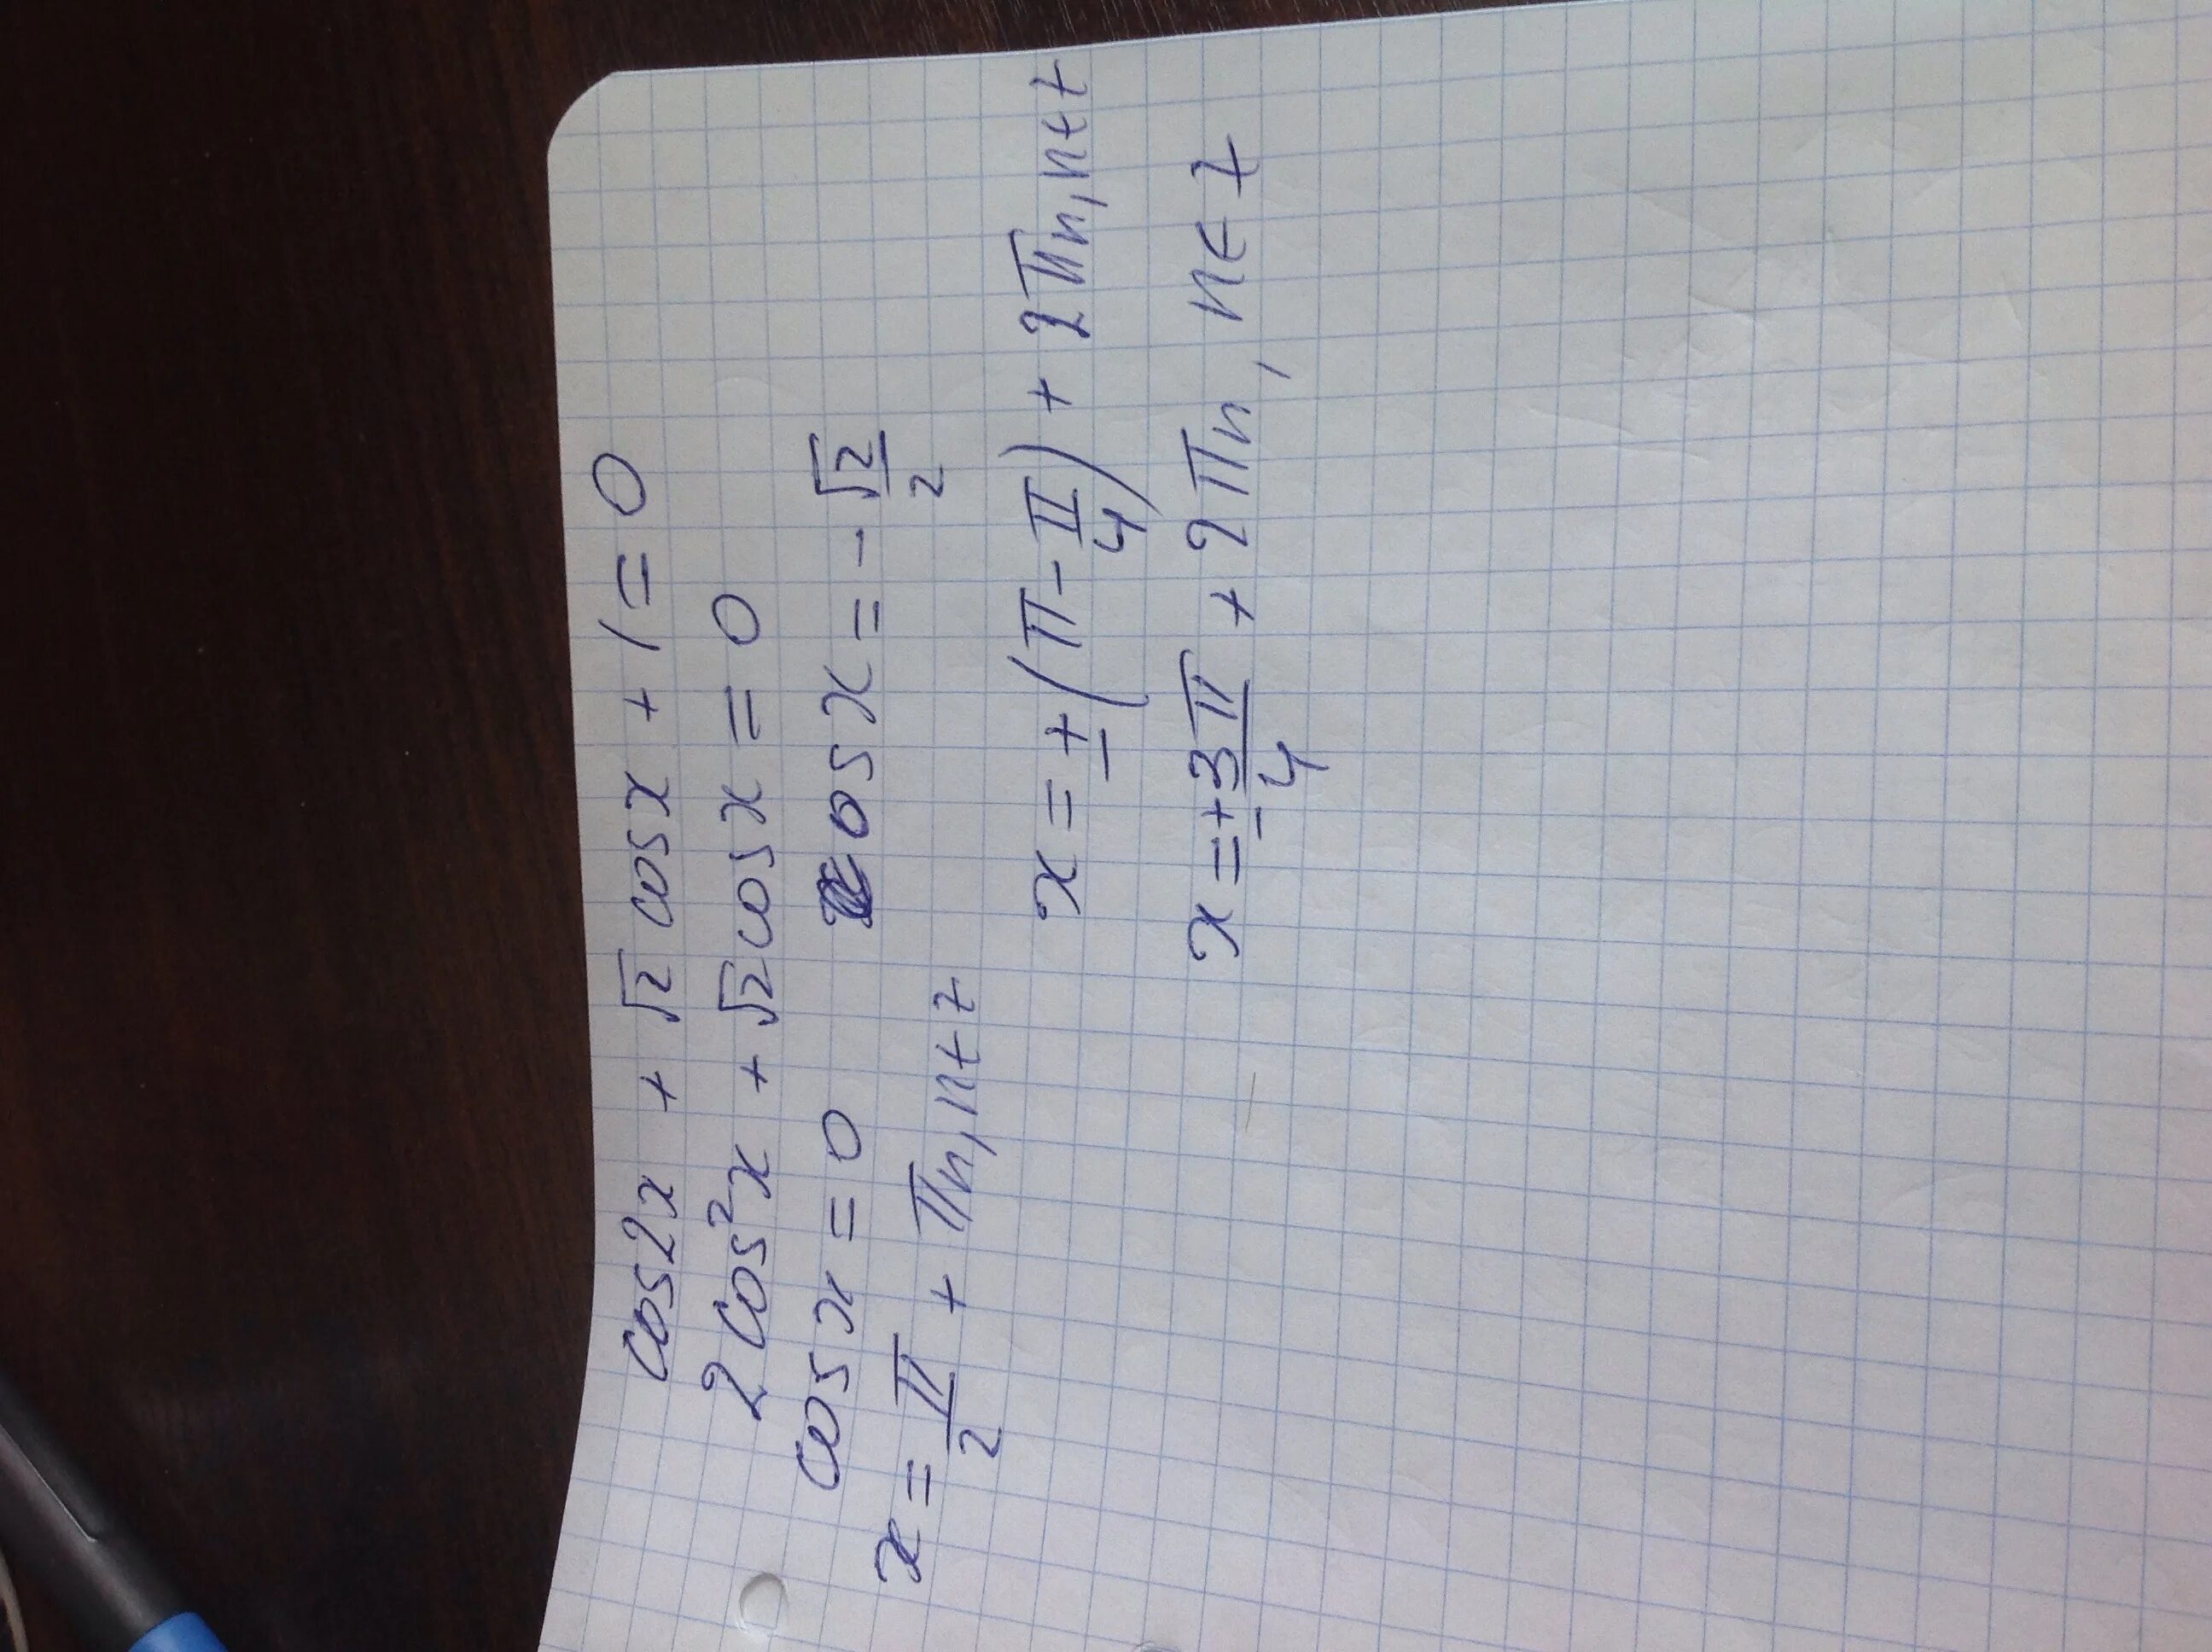 cos2x + √2 cosx + 1 = 0
2cos²x + √2cosx = 0
cosx = 0   cosx = -√2/2
x = π/2 + πn, n∈z
x = ±(π - π/4) + 2πn, n∈z
x = ±3π/4 + 2πn, n∈z